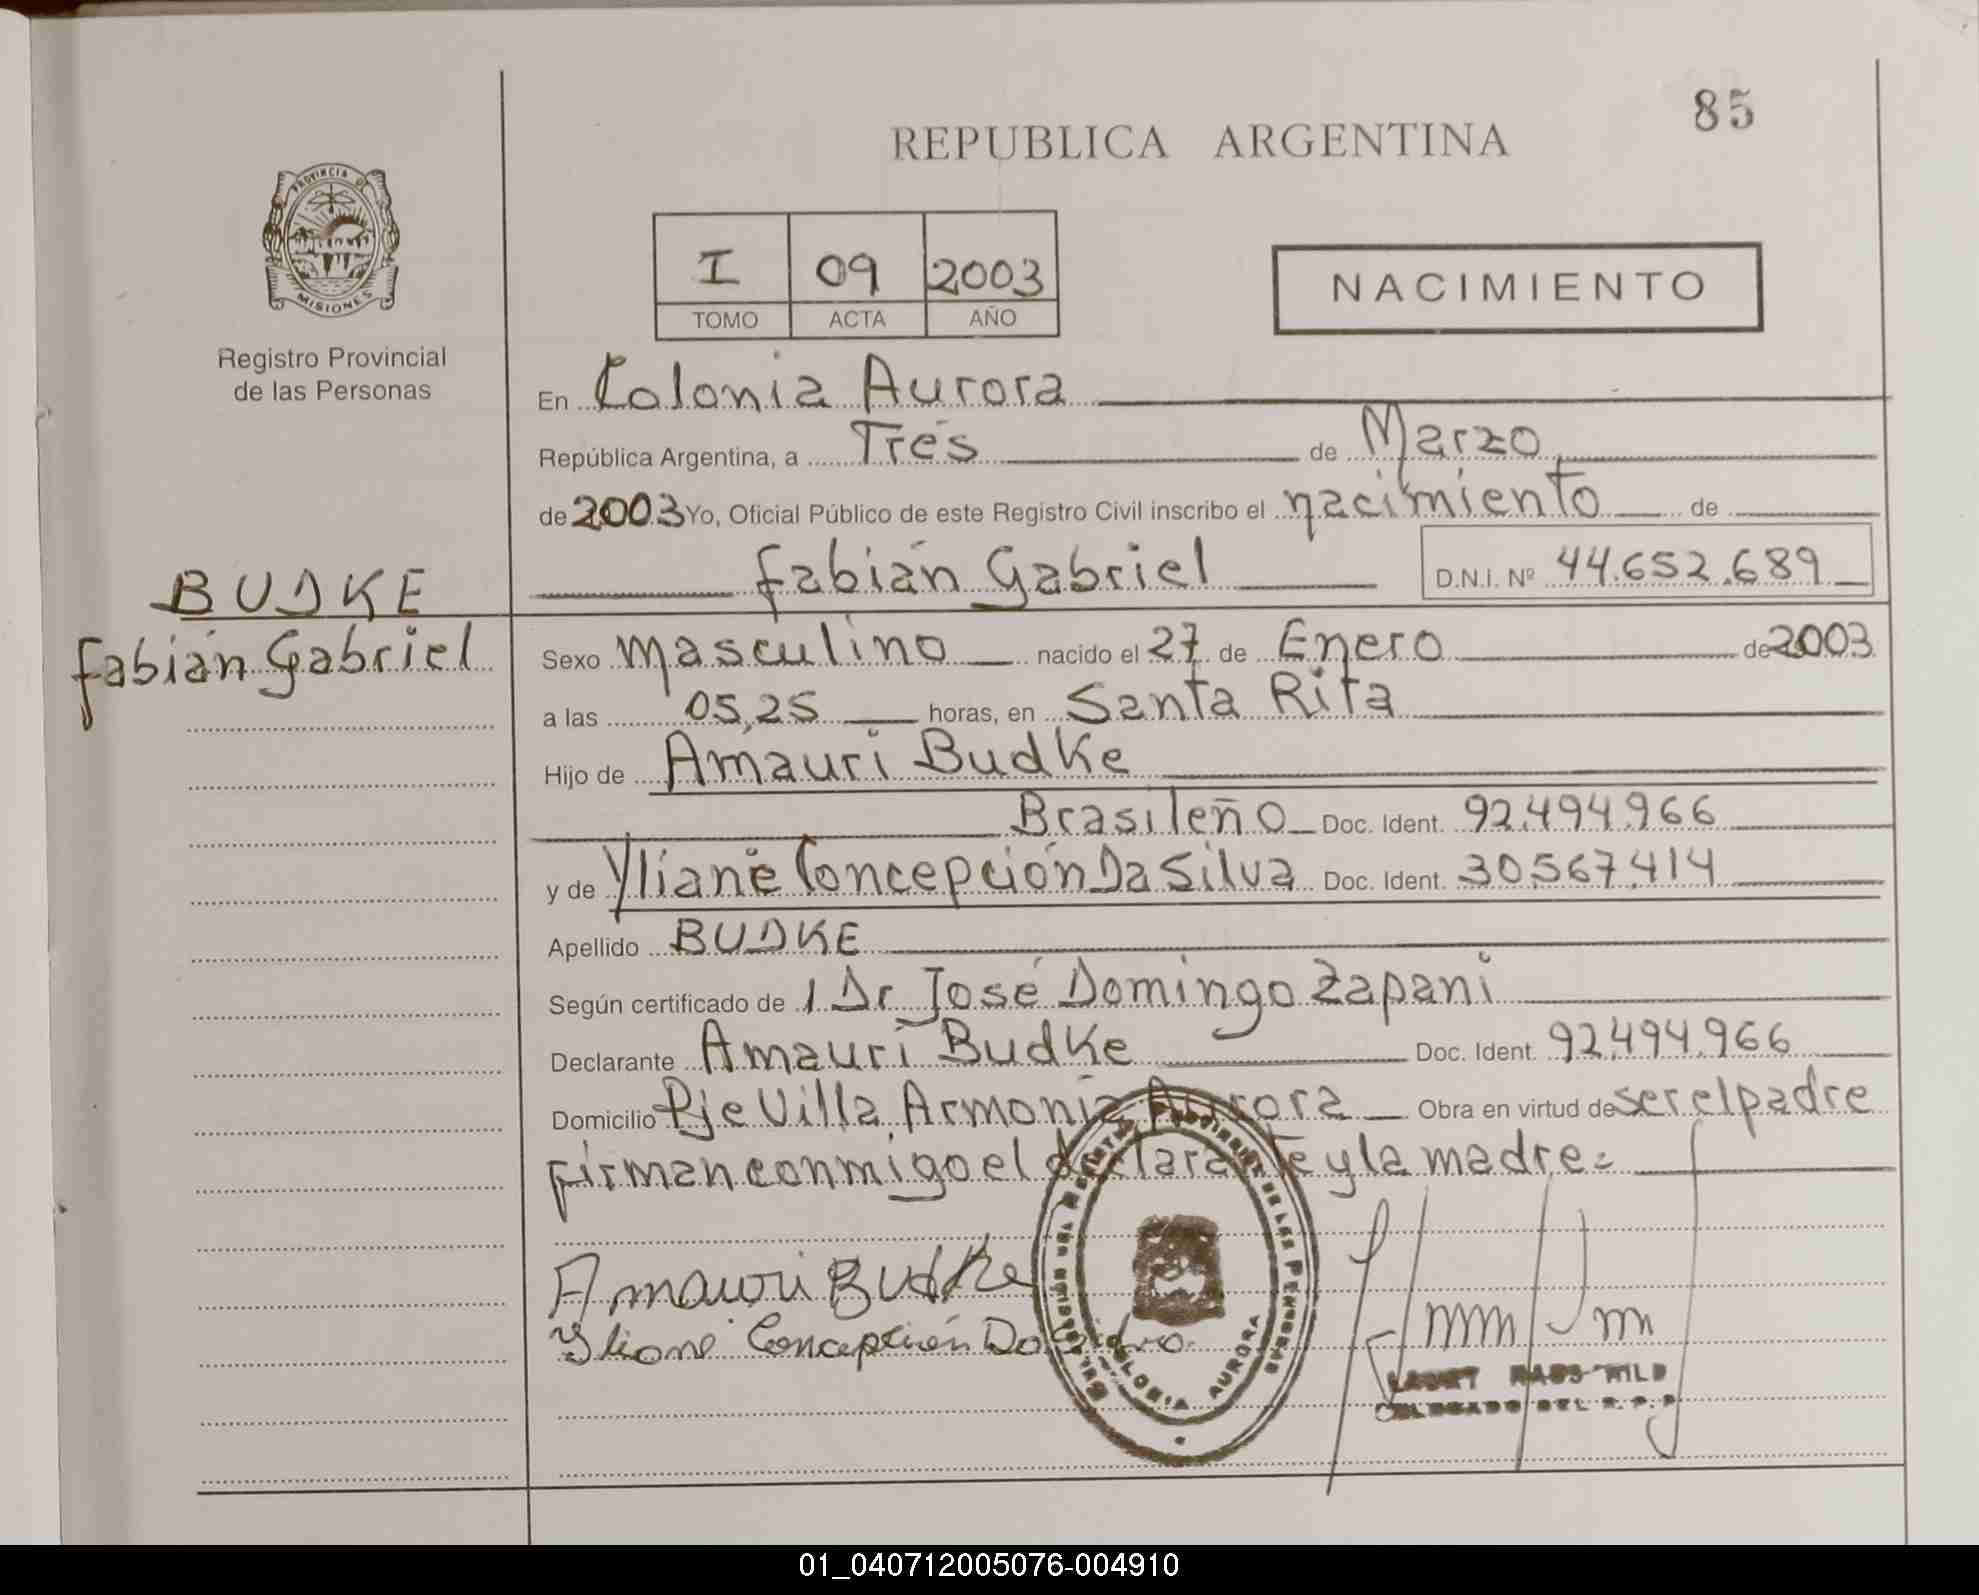 85
REPUBLICA ARGENTINA
PROVINCIA DE
MISIONES
Registro Provincial
de las Personas
I 09 2003
TOMO ACTA AÑO
NACIMIENTO
En Colonia Aurora
República Argentina, a Tres de Marzo
de 2003 Yo, Oficial Público de este Registro Civil inscribo el nacimiento de
Fabián Gabriel D.N.I. Nº 44.652.689
BUDKE
Fabián Gabriel
Sexo masculino nacido el 27 de Enero de 2003
a las 05,25 horas, en Santa Rita
Hijo de Amauri Budke
Brasileño Doc. Ident. 92.494.966
y de Yliane Concepción Da Silva Doc. Ident. 30.567.414
Apellido BUDKE
Según certificado de 1 Dr José Domingo Zapani
Declarante Amauri Budke Doc. Ident. 92.494.966
Domicilio Pje Villa Armonia Aurora Obra en virtud de ser el padre
firman conmigo el declarante y la madre=
Amauri Budke
Yliane Concepción Da Silva
COLONIA AURORA
DELEGADO DEL R.P.P
01_040712005076-004910